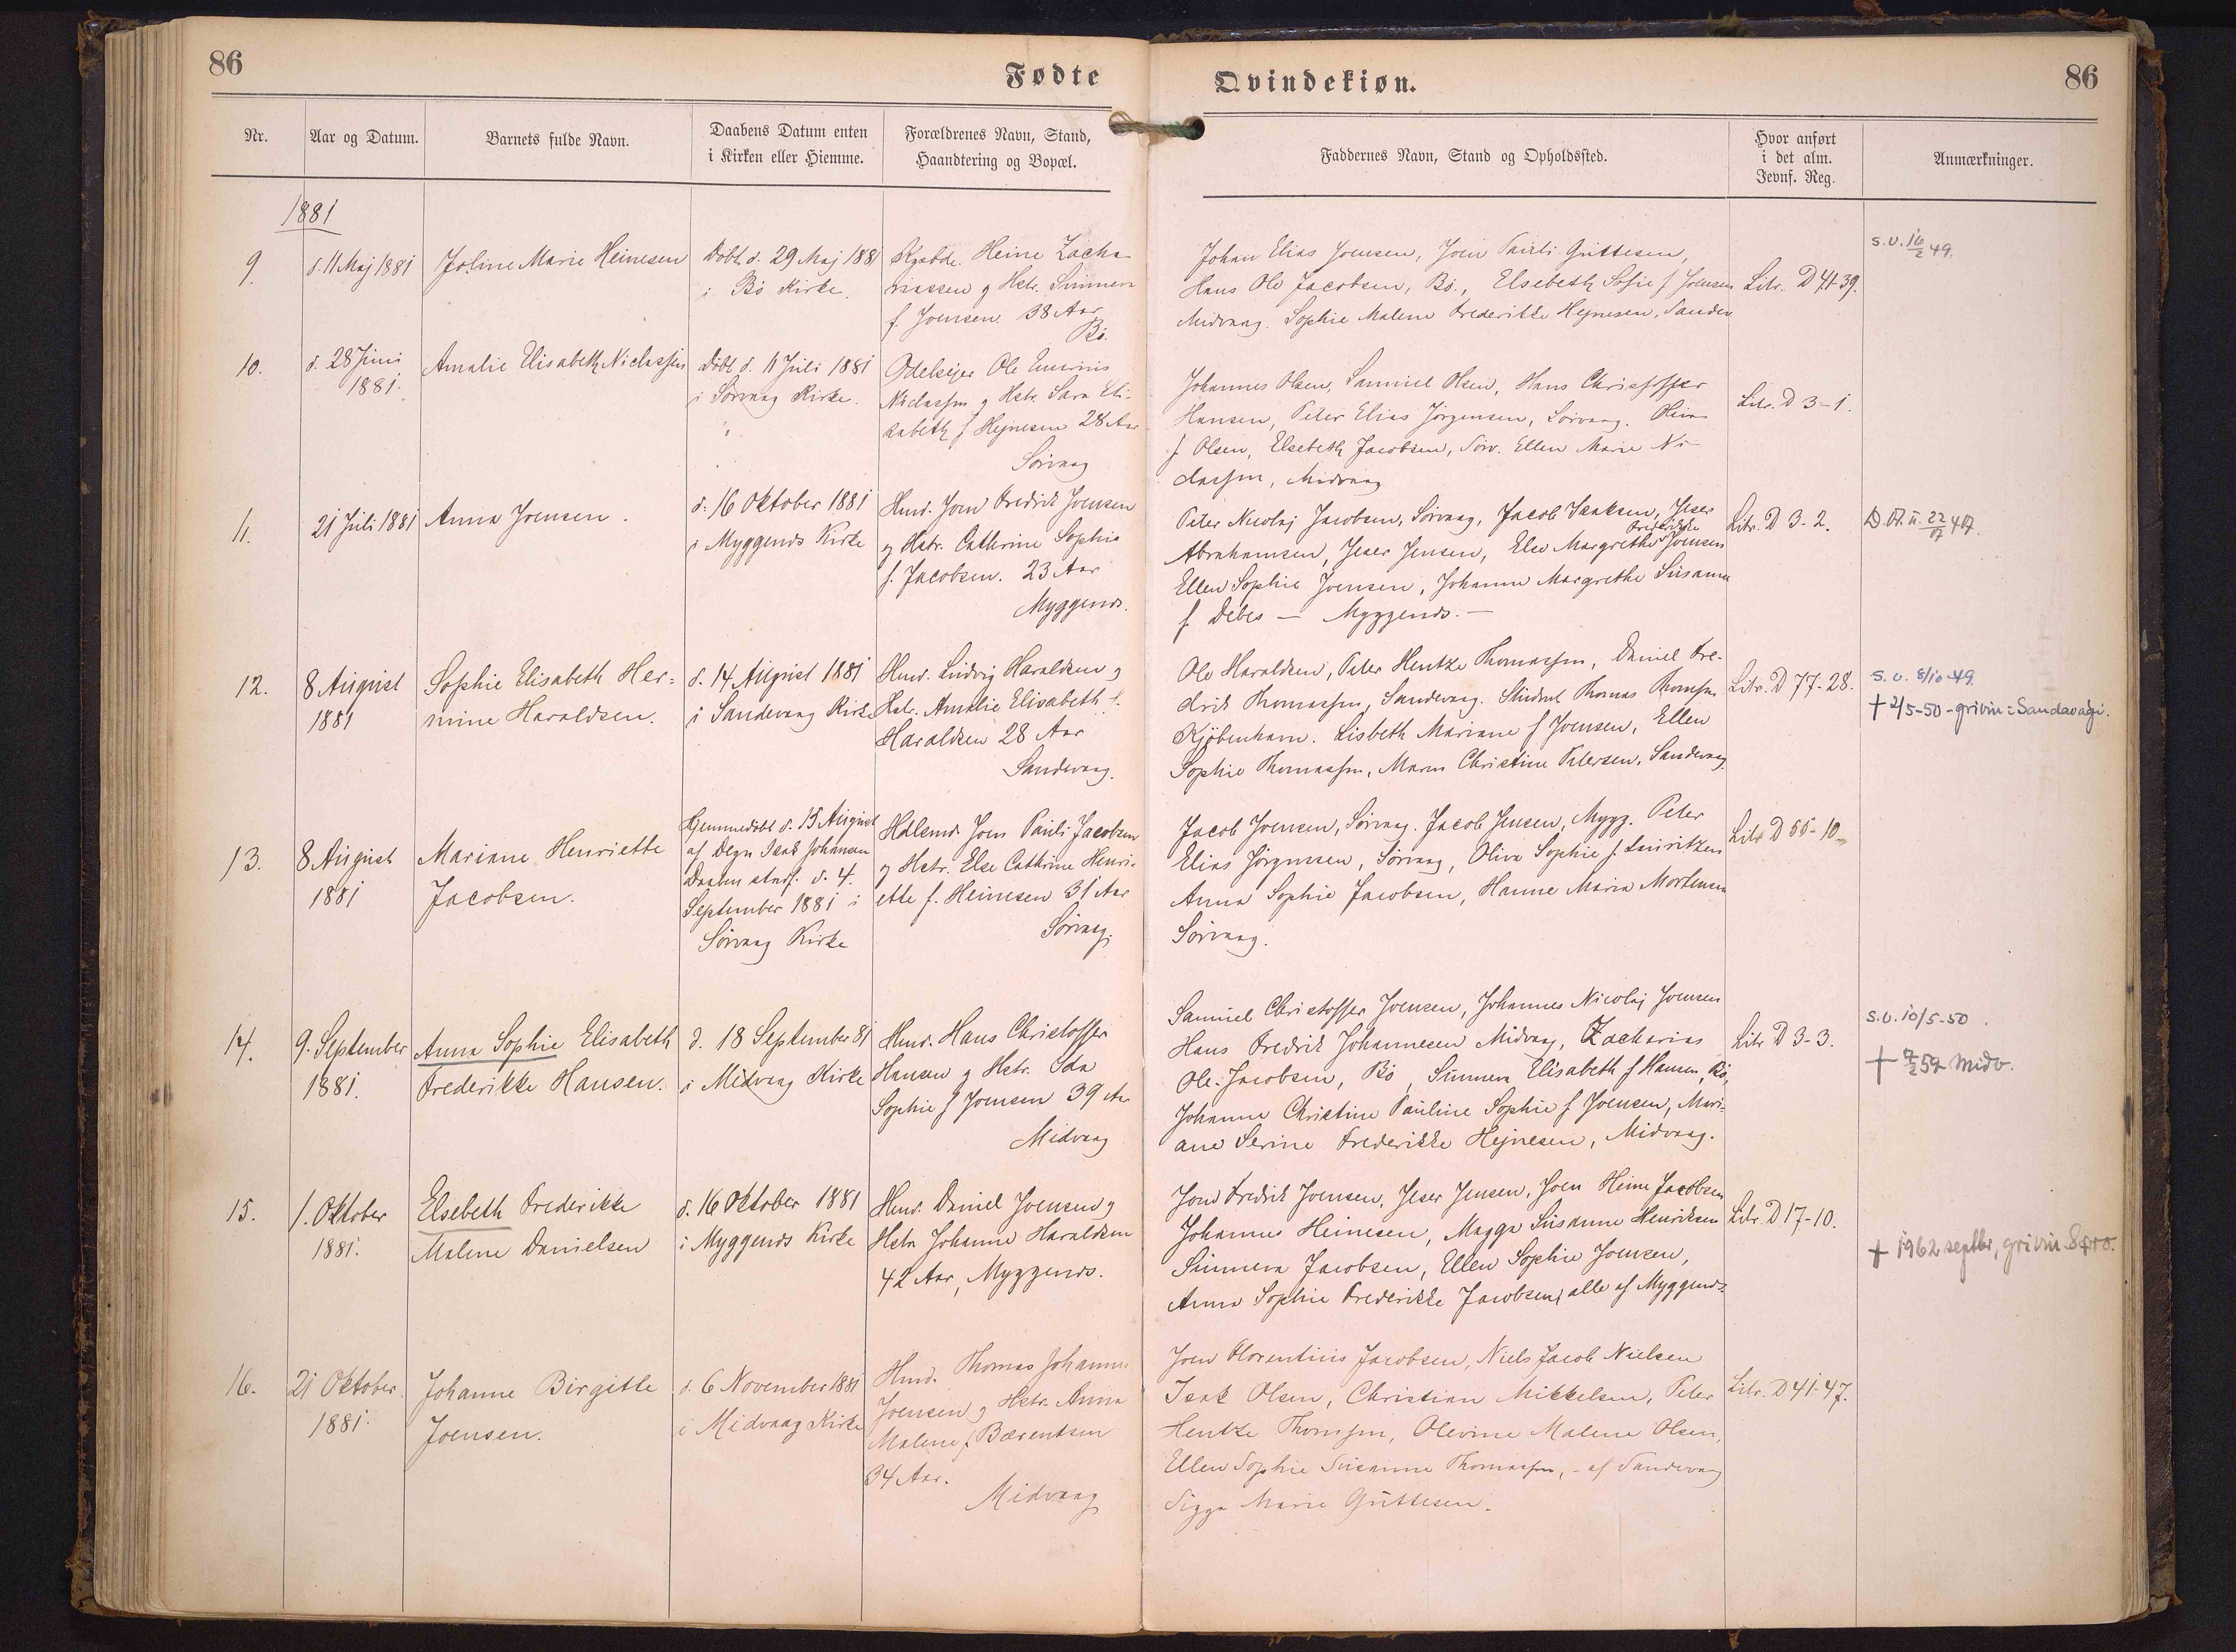 86
Fødte
Qvindekiøn.
86
Nr.
Aar og Datum.
Barnets fulde Navn.
Daabens Datum enten
i Kirken eller Hiemme.
Forældrenes Navn, Stand,
Haandtering og Bopæl.
Faddernes Navn, Stand og Opholdssted.
Hvor anført
i det alm.
Jevnf. Reg.
Anmærkninger.
1881
9.
d. 11 Maj 1881
Joline Marie Heinesen
Döbt d. 29 Maj 1881
i Bö Kirke.
Heine Zacha-
riassen og Hstr. Sunneva
f. Joensen. 38 Aar
Bö.
Johan Elias Joensen, Joen Pauli Guttesen,
Hans Ole Jacobsen, Bö., Elsebeth Sofie f Joensen
Midvaag. Sophie Malene Frederikke Hejnesen, Sandev.
Litr. D 41-39.
s.v. 16/2 49.
10.
d. 28 Juni
1881.
Amalie Elisabeth Niclassen
Döbt d. 11 Juli 1881
i Sörvaag Kirke.
Odelsejer Ole
Niclassen og Hstr. Sara Eli-
sabeth f Hejnesen 28 Aar
Sörvaag
Johannes Olsen, Samuel Olsen, Hans Christoffer
Hansen, Peter Elias Jörgensen, Sörvaag.
f Olsen, Elsebeth Jacobsen, Sörv. Ellen Marie Ni-
classen, Midvaag
Litr. D 3-1.
11.
21 Juli 1881
Anna Joensen.
d. 16 Oktober 1881
i Myggends Kirke
Hmd. Joen Fredrik Joensen
og Hstr. Cathrine Sophie
f. Jacobsen. 23 Aar
Myggends.
Peter Nicolaj Jacobsen, Sörvaag, Jacob Isaksen, Jeser
Frederikke
Abrahamsen, Jeser Jensen, Else Margrethe Joensen
Ellen Sophie Joensen, Johanne Margrethe Susanne
f Debes - Myggends. -
Litr. D 3-2.
12.
8 August
1881
Sophie Elisabeth Her=
mine Haraldsen.
d. 14 August 1881
i Sandevaag Kirke
Hmd. Ludvig Haraldsen og
Hstr. Amalie Elisabeth f.
Haraldsen 28 Aar
Sandevaag.
Ole Haraldsen, Peter Hentze Thomassen, Daniel Fre-
drik Thomassen, Sandevaag. Student Thomas Thomsen
Kjöbenhavn. Lisbeth Mariane f Joensen, Ellen
Sophie Thomassen, Maren Christine Petersen, Sandevaag
Litr. D 77-28.
s.v. 8/10-49.
+ 2/5-50 - grivin: Sandavági.
13.
8 August
1881
Mariane Henriette
Jacobsen.
Hjemmedöbt d. 15 August
af Degn Isak Johansen
Daaben stadf. d. 4.
September 1881 i
Sörvaag Kirke
Joen Pauli Jacobsen
og Hstr. Else Cathrine Henri-
ette f. Heinesen 31 Aar
Sörvaag.
Jacob Joensen, Sörvaag. Jacob Jensen, Mygg. Peter
Elias Jörgensen, Sörvaag, Oliva Sophie f. Lauritzen
Anna Sophie Jacobsen, Hanne Maria Mortensen
Sörvaag.
Litr D 55-10
14.
9. September
1881.
Anna Sophie Elisabeth
Frederikke Hansen.
d. 18 September 81
i Midvaag Kirke
Hmd. Hans Christoffer
Hansen og Hstr. Ida
Sophie f Joensen 39 Aar
Midvaag
Samuel Christoffer Joensen, Johannes Nicolaj Joensen
Hans Fredrik Johannesen Midvaag, Zacharias
Ole Jacobsen, Bö, Sunneva Elisabeth f Hansen, Bö,
Johanne Christine Pauline Sophie f Joensen, Mari-
ane Serine Frederikke Hejnesen, Midvaag.
Litr D 3-3.
s.v. 10/5-50.
15.
1. Oktober
1881.
Elsebeth Frederikke
Malene Danielsen
d. 16 Oktober 1881
i Myggends Kirke
Hmd. Daniel Joensen og
Hstr. Johanne Haraldsen
42 Aar, Myggends.
Joen Fredrik Joensen, Jeser Jensen, Joen Heine Jacobsen
Johannes Heinesen, Magga Susanne Henriksen
Sunneva Jacobsen, Ellen Sophie Joensen,
Anna Sophie Frederikke Jacobsen, alle af Myggends.
Litr. D 17-10.
+ 1962 septbr, grivin
16.
21 Oktober
1881.
Johanne Birgitte
Joensen.
d. 6 November 1881
i Midvaag Kirke
Hmd. Thomas Johannes
Joensen og Hstr. Anna
Malene f Bærentsen
34 Aar.
Midvaag
Joen Florentius Jacobsen, Niels Jacob Nielsen
Isak Olsen, Christian Mikkelsen, Peter
Hentze Thomsen, Olevine Malene Olsen,
Ellen Sophie Susanne Thomassen, - af Sandevaag
Sigga Marie Guttesen.
Litr. D 41-47.